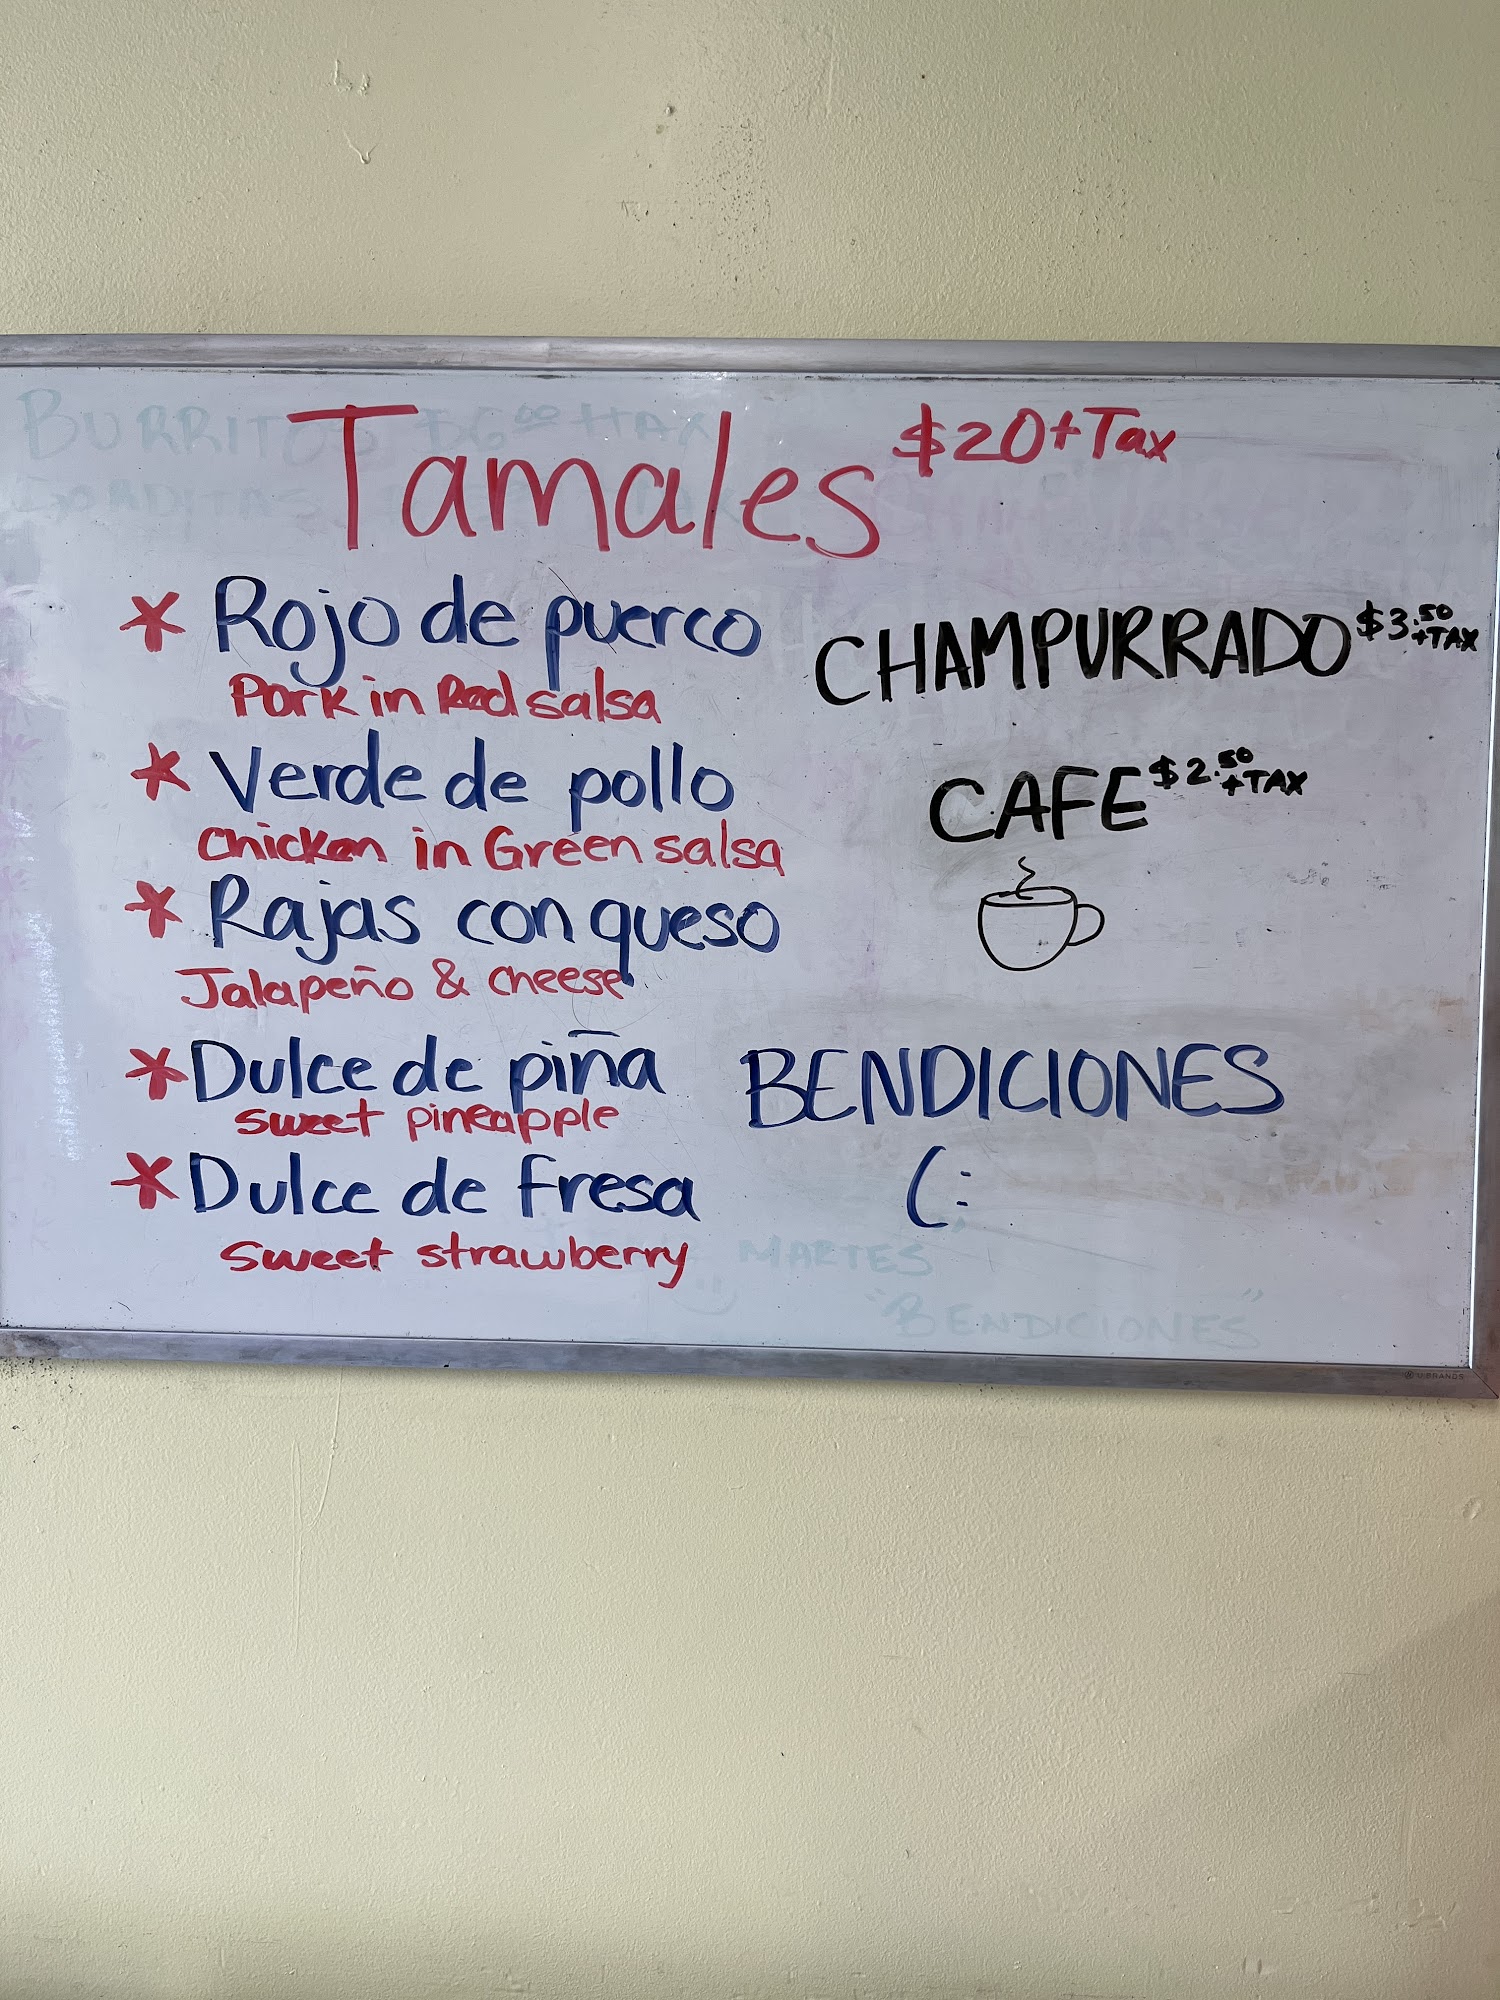 BURRITOS $6.00 +TAX
GORDITAS
Tamales $20+Tax
* Rojo de puerco
Pork in Red salsa
* Verde de pollo
Chicken in Green salsa
* Rajas con queso
Jalapeño & cheese
* Dulce de piña
sweet pineapple
* Dulce de fresa
sweet strawberry
CHAMPURRADO $3.50 +TAX
CAFE $2.50 +TAX
BENDICIONES
(:
MARTES
"BENDICIONES"
U BRANDS